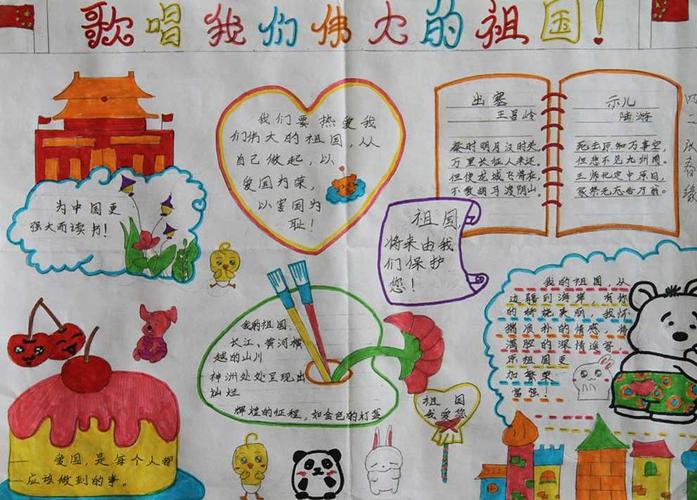 歌唱我们伟大的祖国!
为中国更
强大而读书!
我们要热爱我
们伟大的祖国,从
自己做起,以
爱国为荣,
以害国为
耻!
出塞
王昌龄
秦时明月汉时关
万里长征人未还。
但使龙城飞将在,
不教胡马渡阴山
示儿
陆游
死去原知万事空,
但悲不见九州同。
王师北定中原日,
家祭无忘告乃翁。
四二
祖国,
将来由我
们保护
您!
我的祖国,
长江、黄河横
越的山川
神洲处处呈现出
灿烂
辉煌的征程,如金色的灯盏
祖国
我爱您
我的祖国 从
边疆到海岸 有你
的
质朴的情感 情
满腔的深情追寻
祖国更
加繁荣
富强!
爱国,是每个人都
应该做到的事。